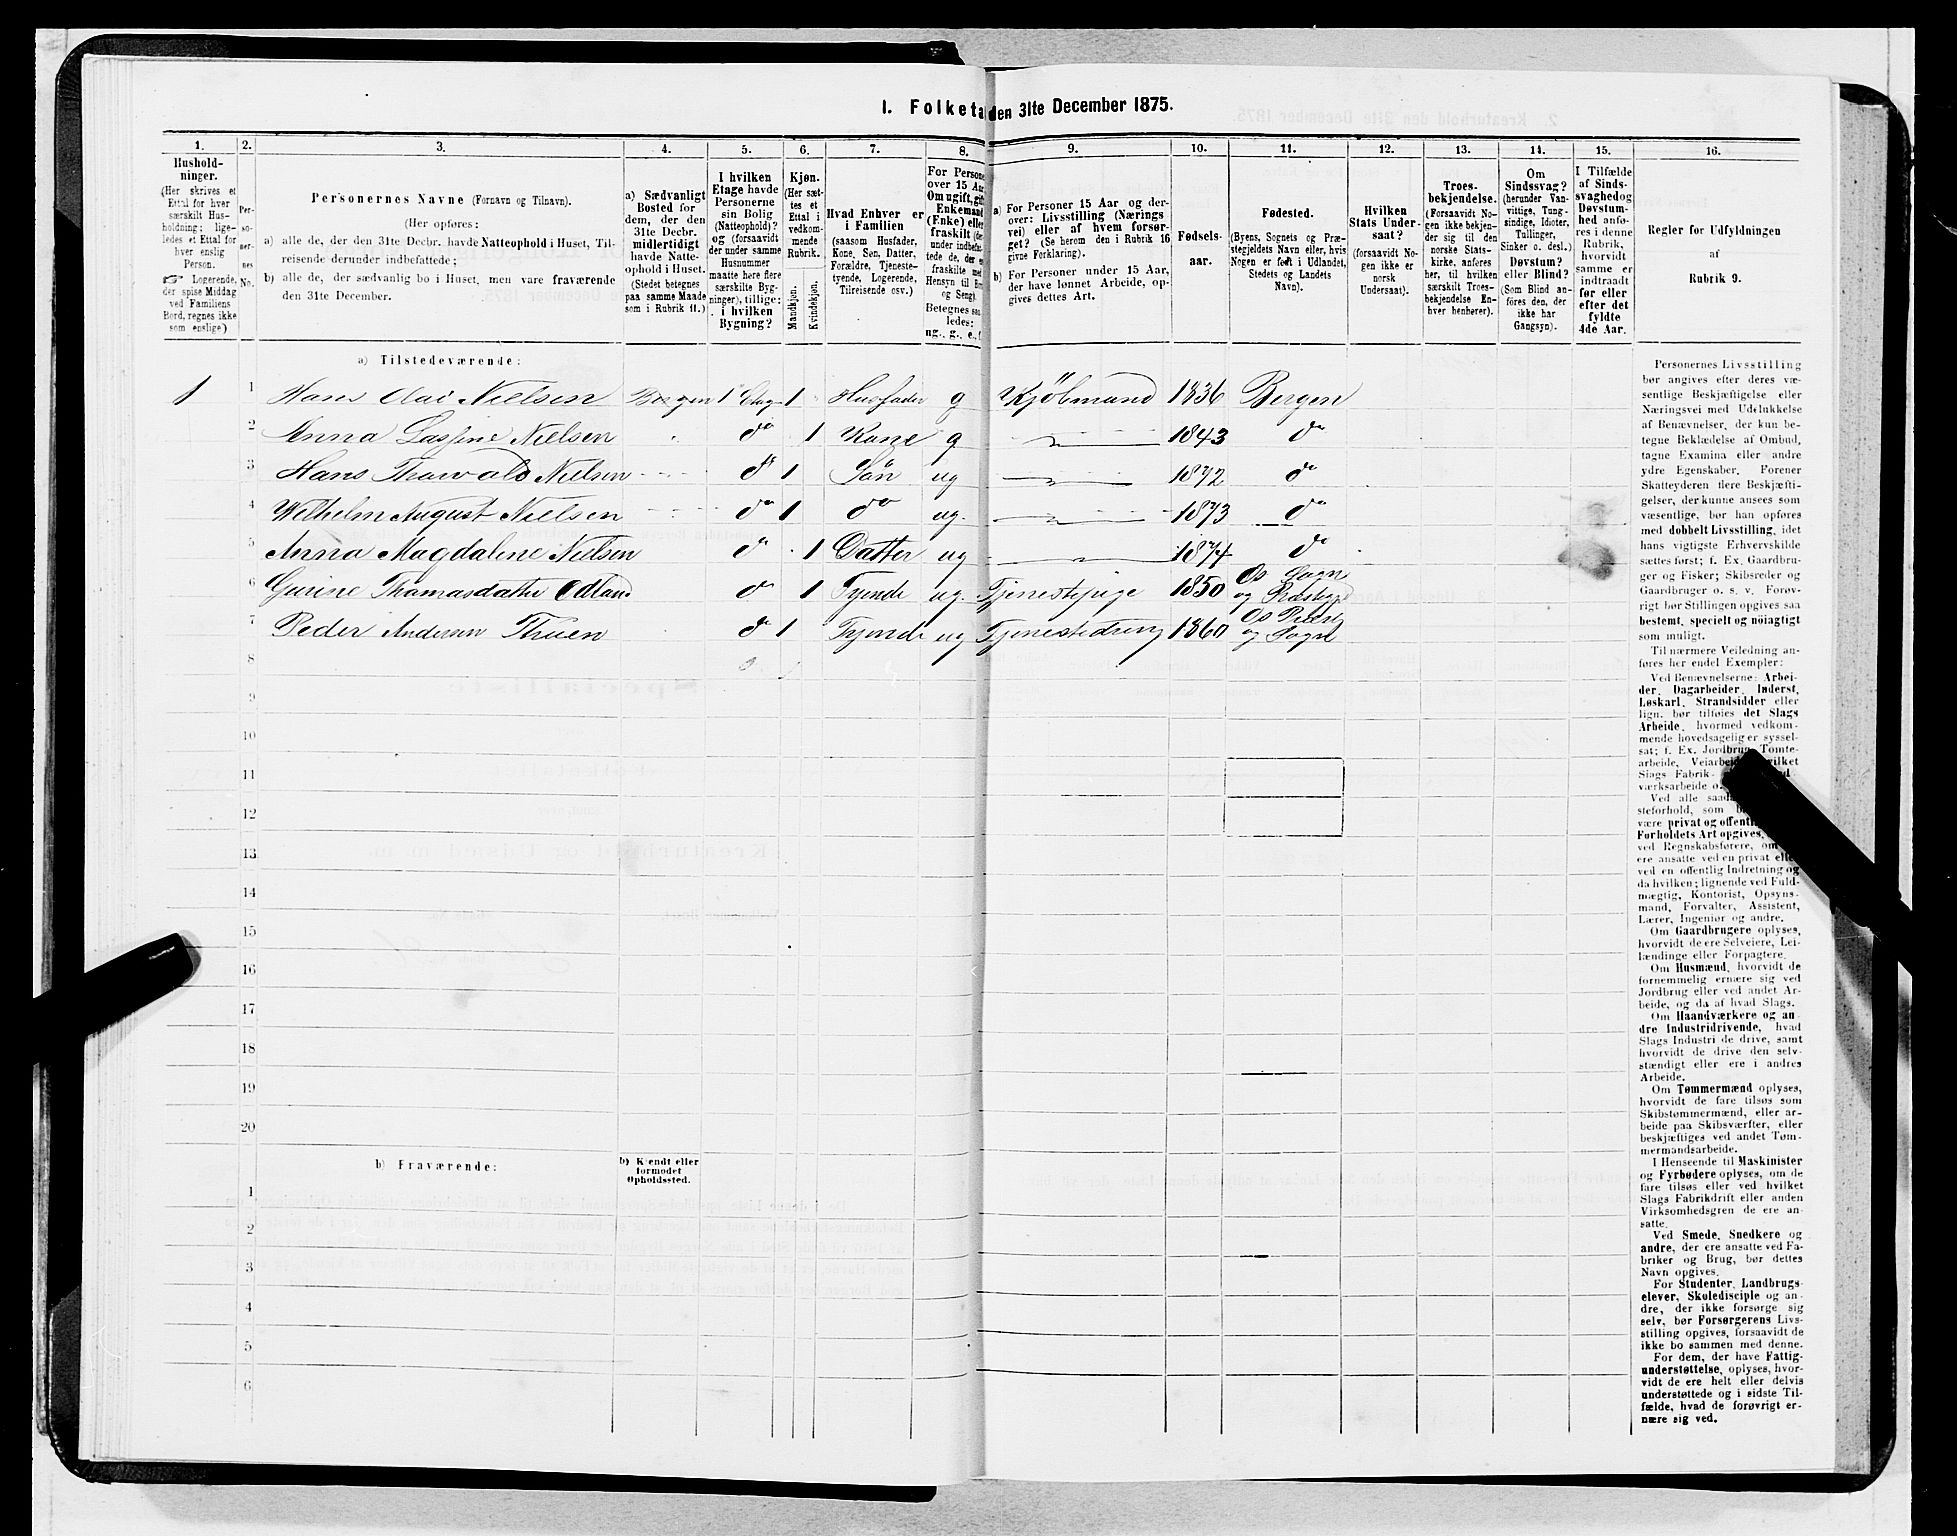 1. Folketa den 31te December 1875.
1. 2. 3. 4. 5. 6. 7. 8. 9. 10. 11. 12. 13. 14. 15. 16.
Hushold-
ninger.
(Her skrives et
Ettal for hver
særskilt Hus-
holdning; lige-
ledes et Ettal for
hver enslig
Person.
☞ Logerende,
der spise Middag
ved Familiens
Bord, regnes ikke
som enslige)
Per-
so-
ner-
nes
No.
Personernes Navne (Fornavn og Tilnavn).
(Her opføres:
a) alle de, der den 31te Decbr. havde Natteophold i Huset, Til-
reisende derunder indbefattede;
b) alle de, der sædvanlig bo i Huset, men vare fraværende
den 31te December.
a) Sædvanligt
Bosted for
dem, der den
31te Decbr.
midlertidigt
havde Natte-
ophold i Huset.
(Stedet betegnes
paa samme Maade
som i Rubrik 11.)
I hvilken
Etage havde
Personerne
sin Bolig
(Natteophold)?
og (forsaavidt
der under samme
Husnummer
maatte here flere
særskilte Byg-
ninger), tillige:
i hvilken
Bygning?
Kjøn.
(Her sæt-
tes et
Ettal i
vedkom-
mende
Rubrik.
Mandkjøn.
Kvindekjøn.
Hvad Enhver er
i Familien
(saasom Husfader,
Kone, Søn, Datter,
Forældre, Tjeneste-
tyende, Logerende,
Tilreisende osv.)
For Persone
over 15 Aar
Om ugift, gift
Enkemand
(Enke) eller
fraskilt (de
under indbefat-
tede de, der e
fraskilte med
Hensyn til Bo
og Seng).
Betegnes saa-
ledes:
ug., g., e., f.
a) For Personer 15 Aar og der-
over: Livsstilling (Nærings
vei) eller af hvem forsør-
get? (Se herom den i Rubrik 16
givne Forklaring).
b) For Personer under 15 Aar,
der have lønnet Arbeide, op-
gives dettes Art.
Fødsels-
aar.
Fødested.
(Byens, Sognets og Præ-
stegjeldets Navn eller, hvis
Nogen er født i Udlandet,
Stedets og Landets
Navn).
Hvilken
Stats Under-
saat?
(forsaavidt No-
gen ikke er
norsk
Undersaat).
Troes-
bekjendelse.
(Forsaavidt No-
gen ikke bekjen-
der sig til den
norske Stats-
kirke, anføres
her, til hvilken
særskilt Troes-
bekjendelse En-
hver henhører).
Om
Sindssvag?
(herunder Van-
vittige, Tung-
sindige, Idioter,
Tullinger,
Sinker o. desl.)
Døvstum?
eller Blind?
(Som Blind an-
føres den, der
ikke har
Gangsyn).
I Tilfælde
af Sinds-
svaghed og
Døvstum-
hed anfø-
res i denne
Rubrik,
hvorvidt
samme er
indtraadt
før eller
efter det
fyldte
4de Aar.
Regler for Udfyldningen
af
Rubrik 9.
a) Tilstedeværende:
1 1 Hans Olai Nielsen Bergen 1 Etag 1 Husfader g Kjöbmand 1836 Bergen
2 Anna Nielsen do 1 Kone g 1843 do
3 Hans Thorvald Nielsen do 1 Sön ug 1872 do
4 Wilhelm August Nielsen do 1 do ug. 1873 do
5 Anna Magdalene Nielsen do 1 Datter ug 1874 do
6 Gurine Thomasdatter Odland do 1 Tyende ug. Tjenestepige 1850 Os Sogn
og Præstegjd
7 Peder Andersen Thuen do 1 Tyende ug Tjenestedreng 1860 Os Præstg
og Sogn
8
9
10
11
12
13
14
15
16
17
18
19
20
b) Fraværende:
b) Kjendt eller
formodet
Opholdssted.
1
2
3
4
5
6
Personernes Livsstilling
bør angives efter deres væ-
sentlige Beskjæftigelse eller
Næringsvei med Udelukkelse
af Benævnelser, der kun be-
tegne Beklædelse af Ombud,
tagne Examina eller andre
ydre Egenskaber. Forener
Skatteyderen flere Beskjæfti-
gelser, der kunne ansees som
væsentlige, bør han opføres
med dobbelt Livsstilling, idet
hans vigtigste Erhvervskilde
sættes først; f. Ex. Gaardbru-
ger og Fisker; Skibsreder og
Gaardbruger o. s. v. Forøv-
rigt bør Stillingen opgives saa
bestemt, specielt og nöiagtigt
som muligt.
Til nærmere Veiledning an-
føres her endel Exempler:
Ved Benævnelserne: Arbei-
der, Dagarbeider, Inderst,
Løskarl, Strandsidder eller
lign. bør tilføies det Slags
Arbeide, hvormed vedkom-
mende hovedsagelig er syssel-
sat; f. Ex. Jordbrug, Tomte-
arbeide, Veiarbeide, hvilket
Slags Fabrik-
værksarbeide o.
Ved alle saada
steforhold, som
være privat og offentl
Forholdets Art opgives,
ved Regnskabsførere, om
ere ansatte ved en privat eller
ved en offentlig Indretning og
da hvilken; lignende ved Fuld-
mægtig, Kontorist, Opsyns-
mand, Forvalter, Assistent,
Lærer, Ingeniør og andre.
Om Gaardbrugere oplyses,
hvorvidt de ere Selveiere, Lei-
lændinge eller Forpagtere.
Om Husmænd, hvorvidt de
fornemmelig ernære sig ved
Jordbrug eller ved andet Ar-
beide, og da af hvad Slags.
Om Haandværkere og an-
dre Industridrivende, hvad
Slags Industri de drive, samt
hvorvidt de drive den selv-
stændigt eller ere i andres
Arbeide.
Om Tømmermænd oplyses,
hvorvidt de fare tilsøs som
Skibstømmermænd, eller ar-
beide paa Skibsværfter, eller
beskjæftiges ved andet Tøm-
mermandsarbeide.
I Henseende til Maskinister
og Fyrbødere oplyses, om de
fare tilsøs eller ved hvilket
Slags Fabrikdrift eller anden
Virksomhedsgren de ere an-
satte.
Ved Smede, Snedkere og
andre, der ere ansatte ved Fa-
briker og Brug, bør dettes
Navn opgives.
For Studenter, Landbrugs-
elever, Skoledisciple og an-
dre, der ikke forsørge sig
selv, bør Forsørgerens Livs-
stilling opgives, forsaavidt de
ikke bo sammen med denne.
For dem, der have Fattig-
understøttelse, oplyses, hvor-
vidt de ere helt eller delvis
understøttede og i sidste Til-
fælde, hvad de forøvrigt er-
nære sig ved.